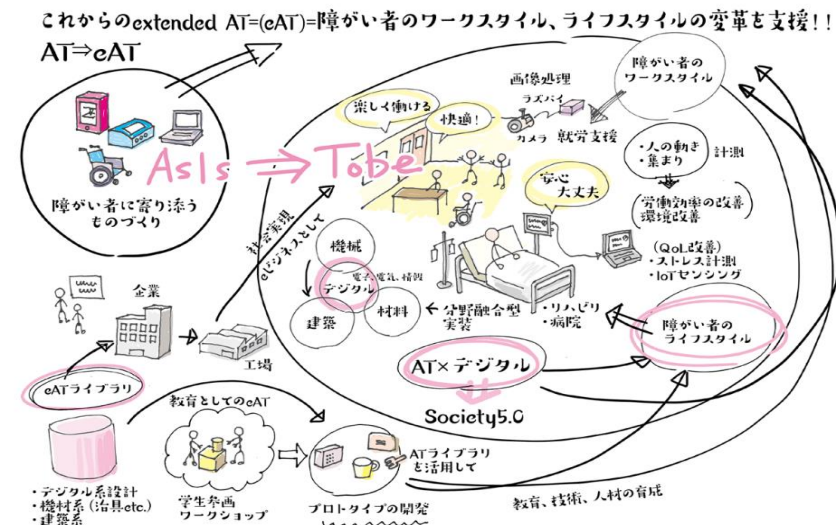 これからのextended AT=(eAT)=障がい者のワークスタイル、ライフスタイルの変革を支援!!
AT⇒eAT
障がい者に寄り添う
ものづくり
AsIs ⇒ Tobe
楽しく働ける
快適!
画像処理
ラズパイ
カメラ
就労支援
障がい者の
ワークスタイル
・人の動き
・集まり
計測
労働効率の改善
環境改善
安心
大丈夫
(QoL改善)
・ストレス計測
・IoTセンシング
社会実現
eビジネスとして
機械
電子、電気、情報
デジタル
建築
材料
←分野融合型
実装
・リハビリ
・病院
障がい者の
ライフスタイル
AT×デジタル
Society5.0
企業
工場
eATライブラリ
・デジタル系設計
・機材系(治具etc.)
・建築系
教育としてのeAT
学生参画
ワークショップ
ATライブラリ
を活用して
プロトタイプの開発
教育、技術、人材の育成